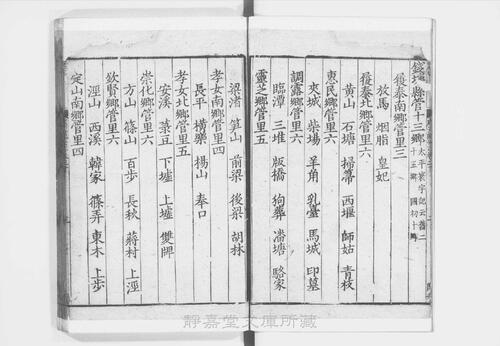 錢塘縣管十三鄉 太平寰宇記云舊二
十五鄉國初十鄉
履泰南鄉管里三
放馬 烟脂 皇妃
履泰北鄉管里六
黃山 石塘 掃箒 西堰 師姑 青枝
惠民鄉管里六
夾城 柴場 羊角 乳臺 馬城 印墓
調露鄉管里六
臨潭 三堆 版橋 狗葬 潘塘 駱家
靈芝鄉管里五
梁渚 筧山 前梁 後梁 胡林
孝女南鄉管里四
長平 橫藥 楊山 奉口
孝女北鄉管里五
安溪 菉豆 下墟 上墟 雙牌
崇化鄉管里六
方山 篠山 百步 長秋 蔣村 上涇
欽賢鄉管里六
涇山 西溪 韓家 篠弄 東木 上步
定山南鄉管里四
靜嘉堂文庫所藏